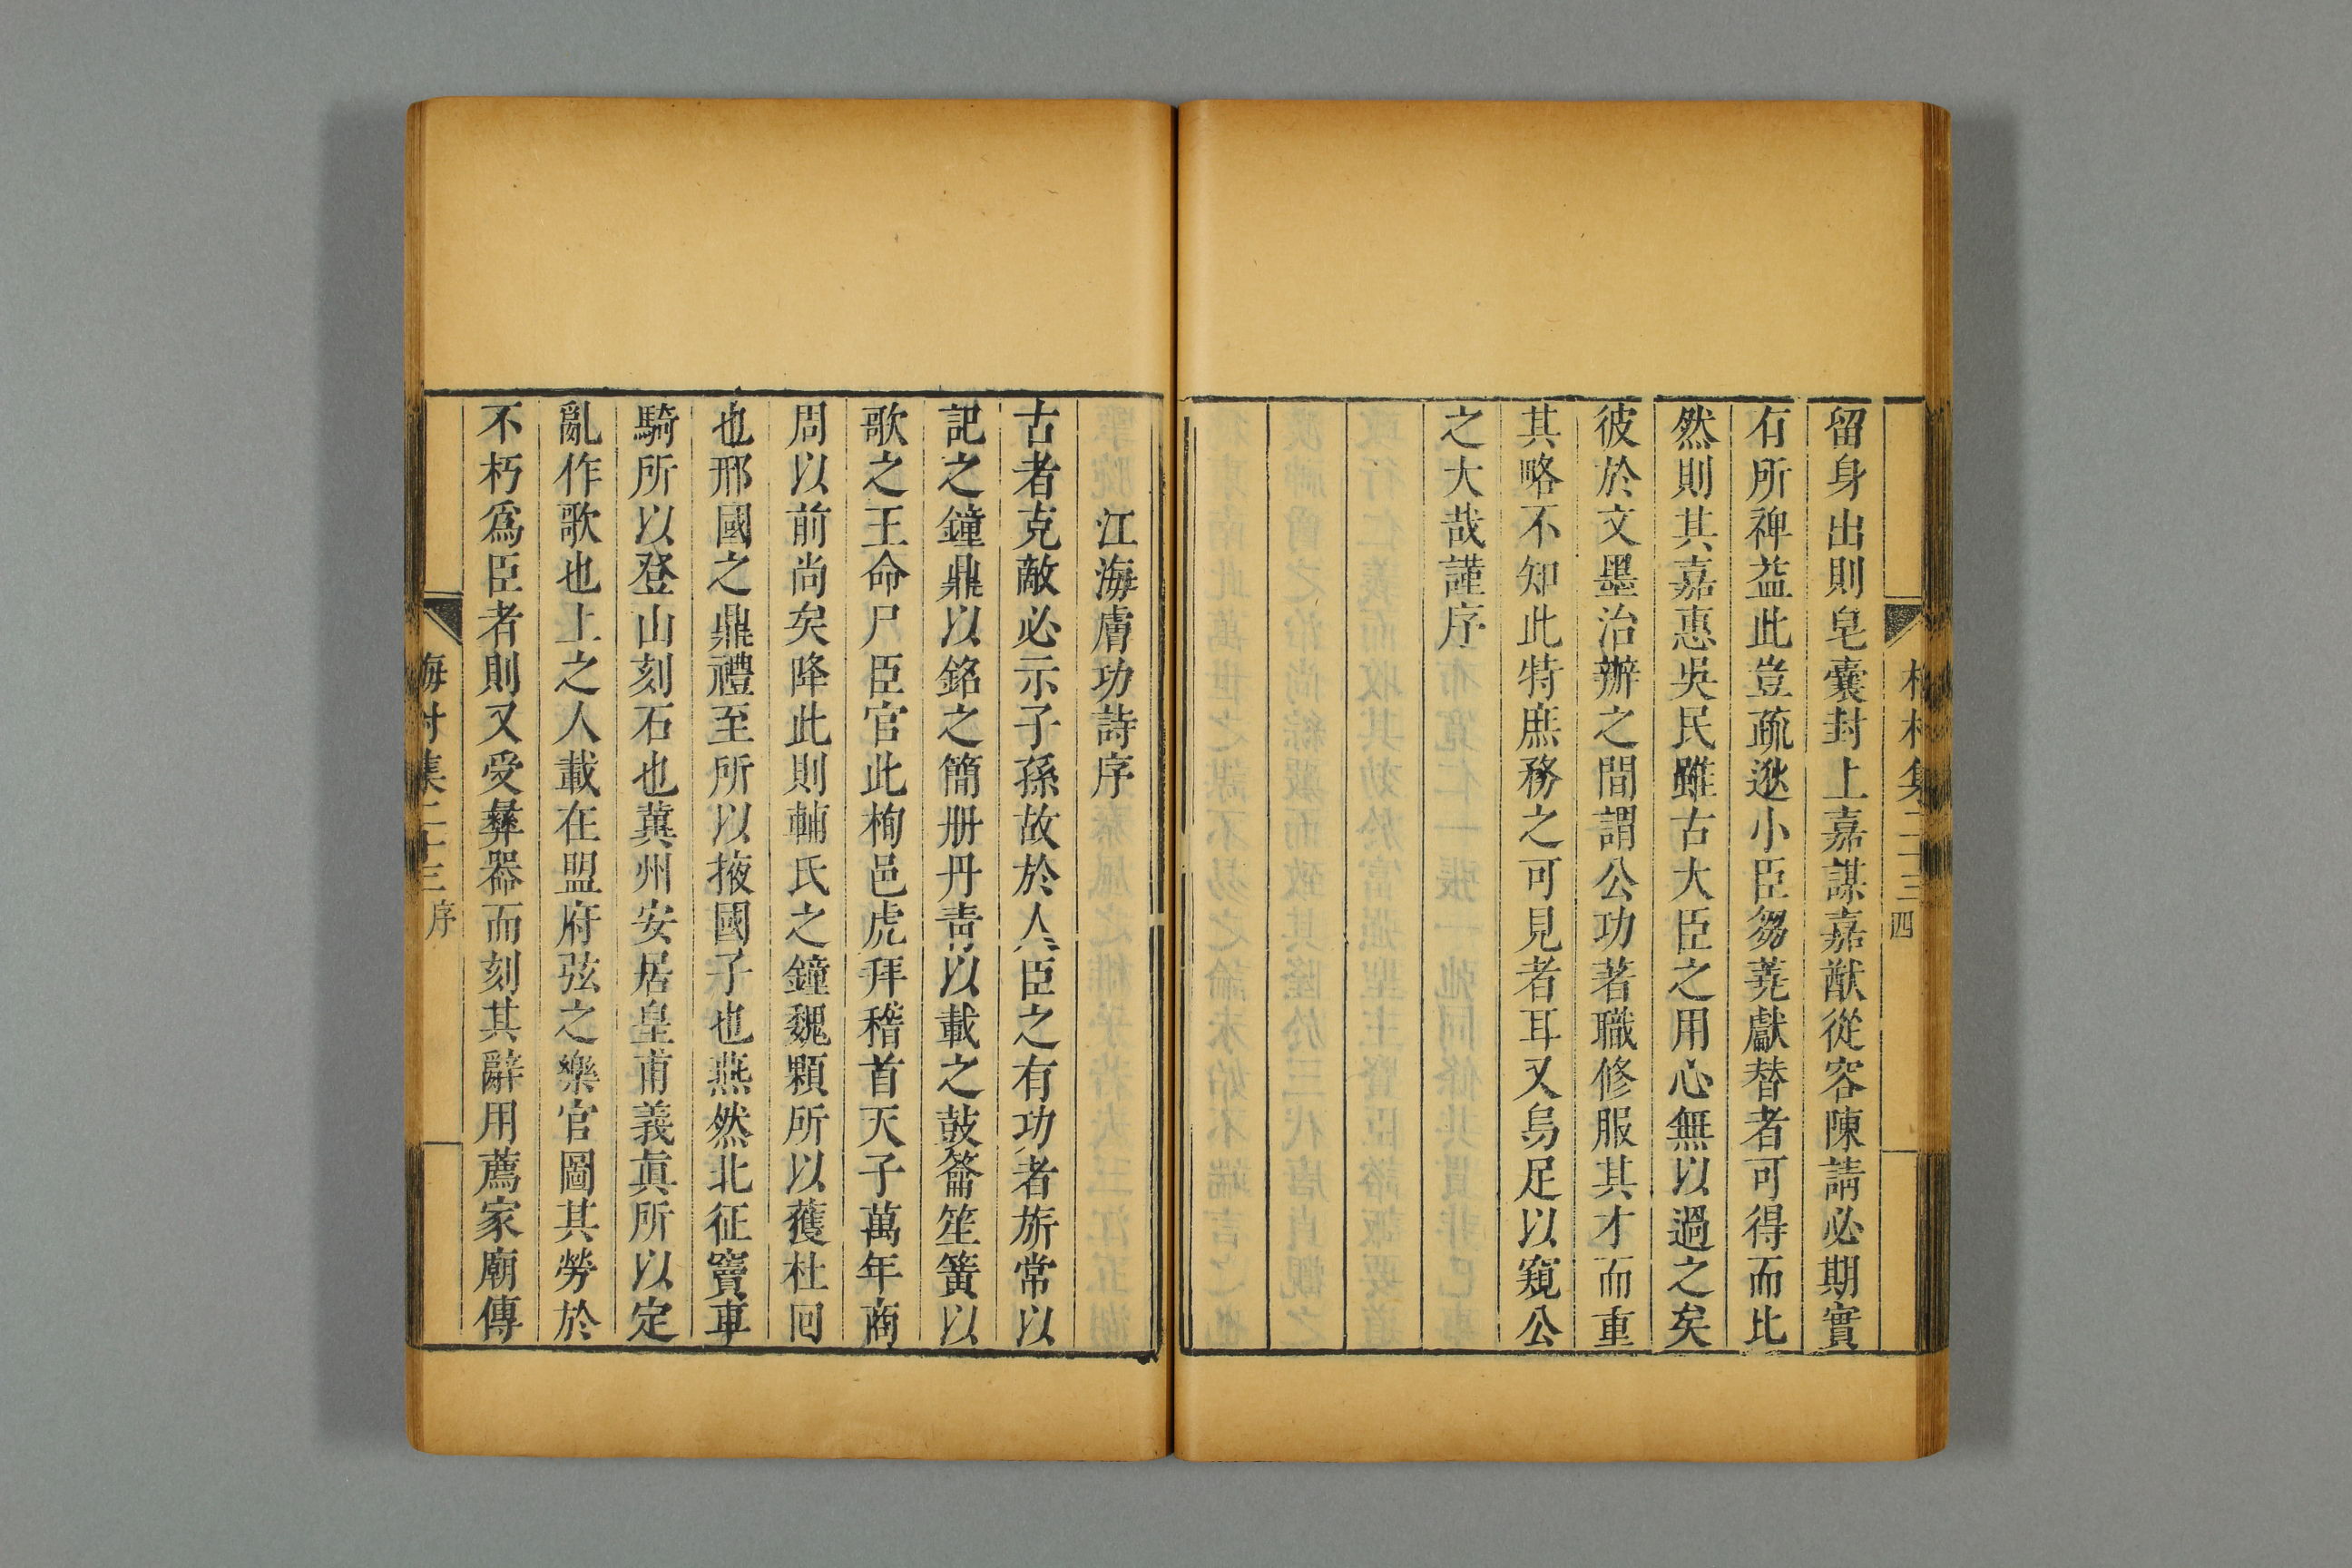 留身出則皂囊封上嘉謀嘉猷從容陳請必期實
有所裨益此豈疏逖小臣芻蕘獻替者可得而比
然則其嘉惠吳民雖古大臣之用心無以過之矣
彼於文墨治辦之間謂公功著職修服其才而重
其略不知此特庶務之可見者耳又烏足以窺公
之大哉謹序
集二十三
四
江海膚功詩序
古者克敵必示子孫故於人臣之有功者旂常以
記之鐘鼎以銘之簡册丹靑以載之鼓籥笙簧以
歌之王命尸臣官此栒邑虎拜稽首天子萬年商
周以前尚矣降此則輔氏之鐘魏顆所以獲杜回
也邢國之鼎禮至所以掖國子也燕然北征竇車
騎所以登山刻石也冀州安居皇甫義眞所以定
亂作歌也上之人載在盟府弦之樂官圖其勞於
不朽爲臣者則又受彝器而刻其辭用薦家廟傳
海村集二十三
序